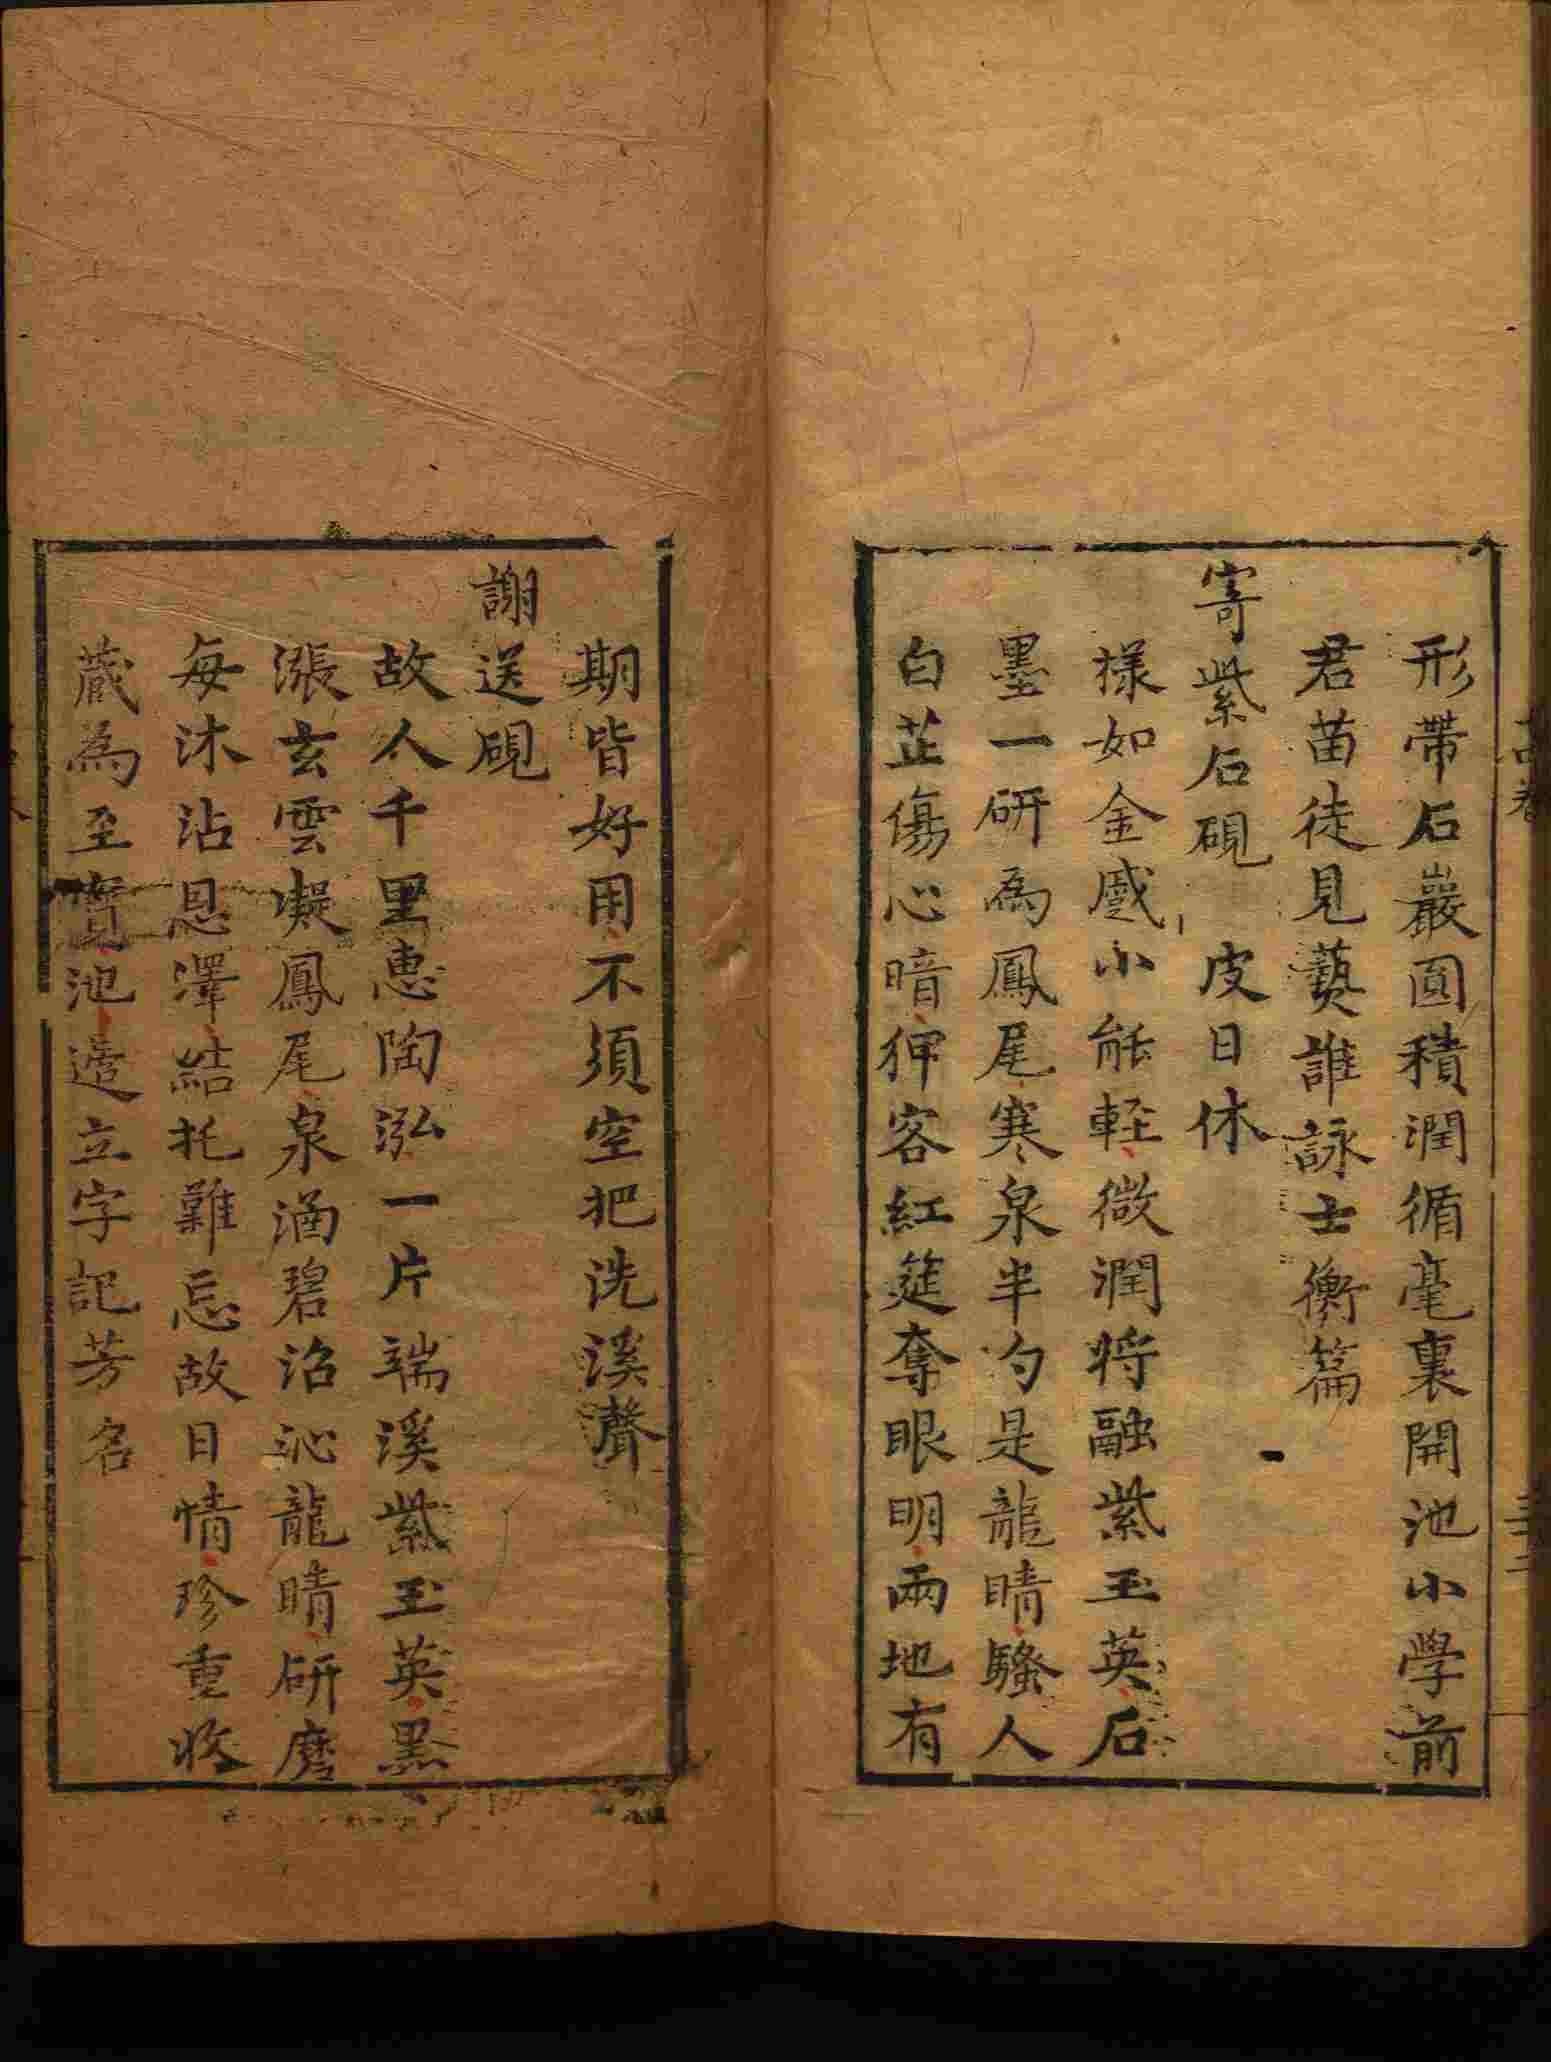 形帶石巖圓積潤循毫裏開池小學前
君苗徒見爇誰詠士衡篇
寄紫石硯 皮日休
様如金蹙小能軽微潤将融紫玉英石
墨一研為鳳尾寒泉半勺是龍睛騷人
白芷傷心暗狎客紅筵奪眼明兩地有
期皆好用不須空把洗溪聲
謝送硯
故人千里惠陶泓一片端溪紫玉英黑
漲玄雲凝鳳尾泉涵碧沼沁龍睛研磨
每沐沾恩澤結托難忘故日情珍重收
藏為至寳池邊立字記芳名